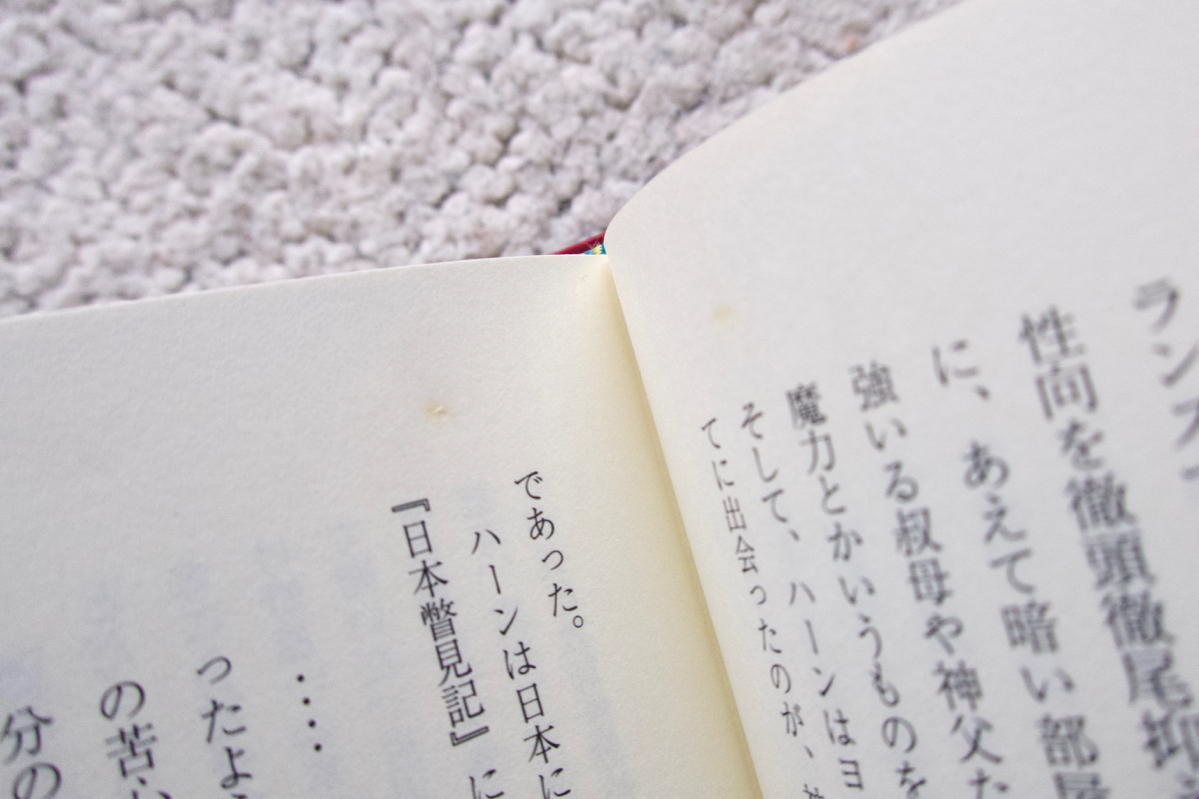 ランス
性向を徹頭徹尾抑
に、あえて暗い部屋
強いる叔母や神父た
魔力とかいうものを
そして、ハーンはヨ
てに出会ったのが、
であった。
ハーンは日本に
『日本瞥見記』に
・・・・
ったよ
の苦い
分の